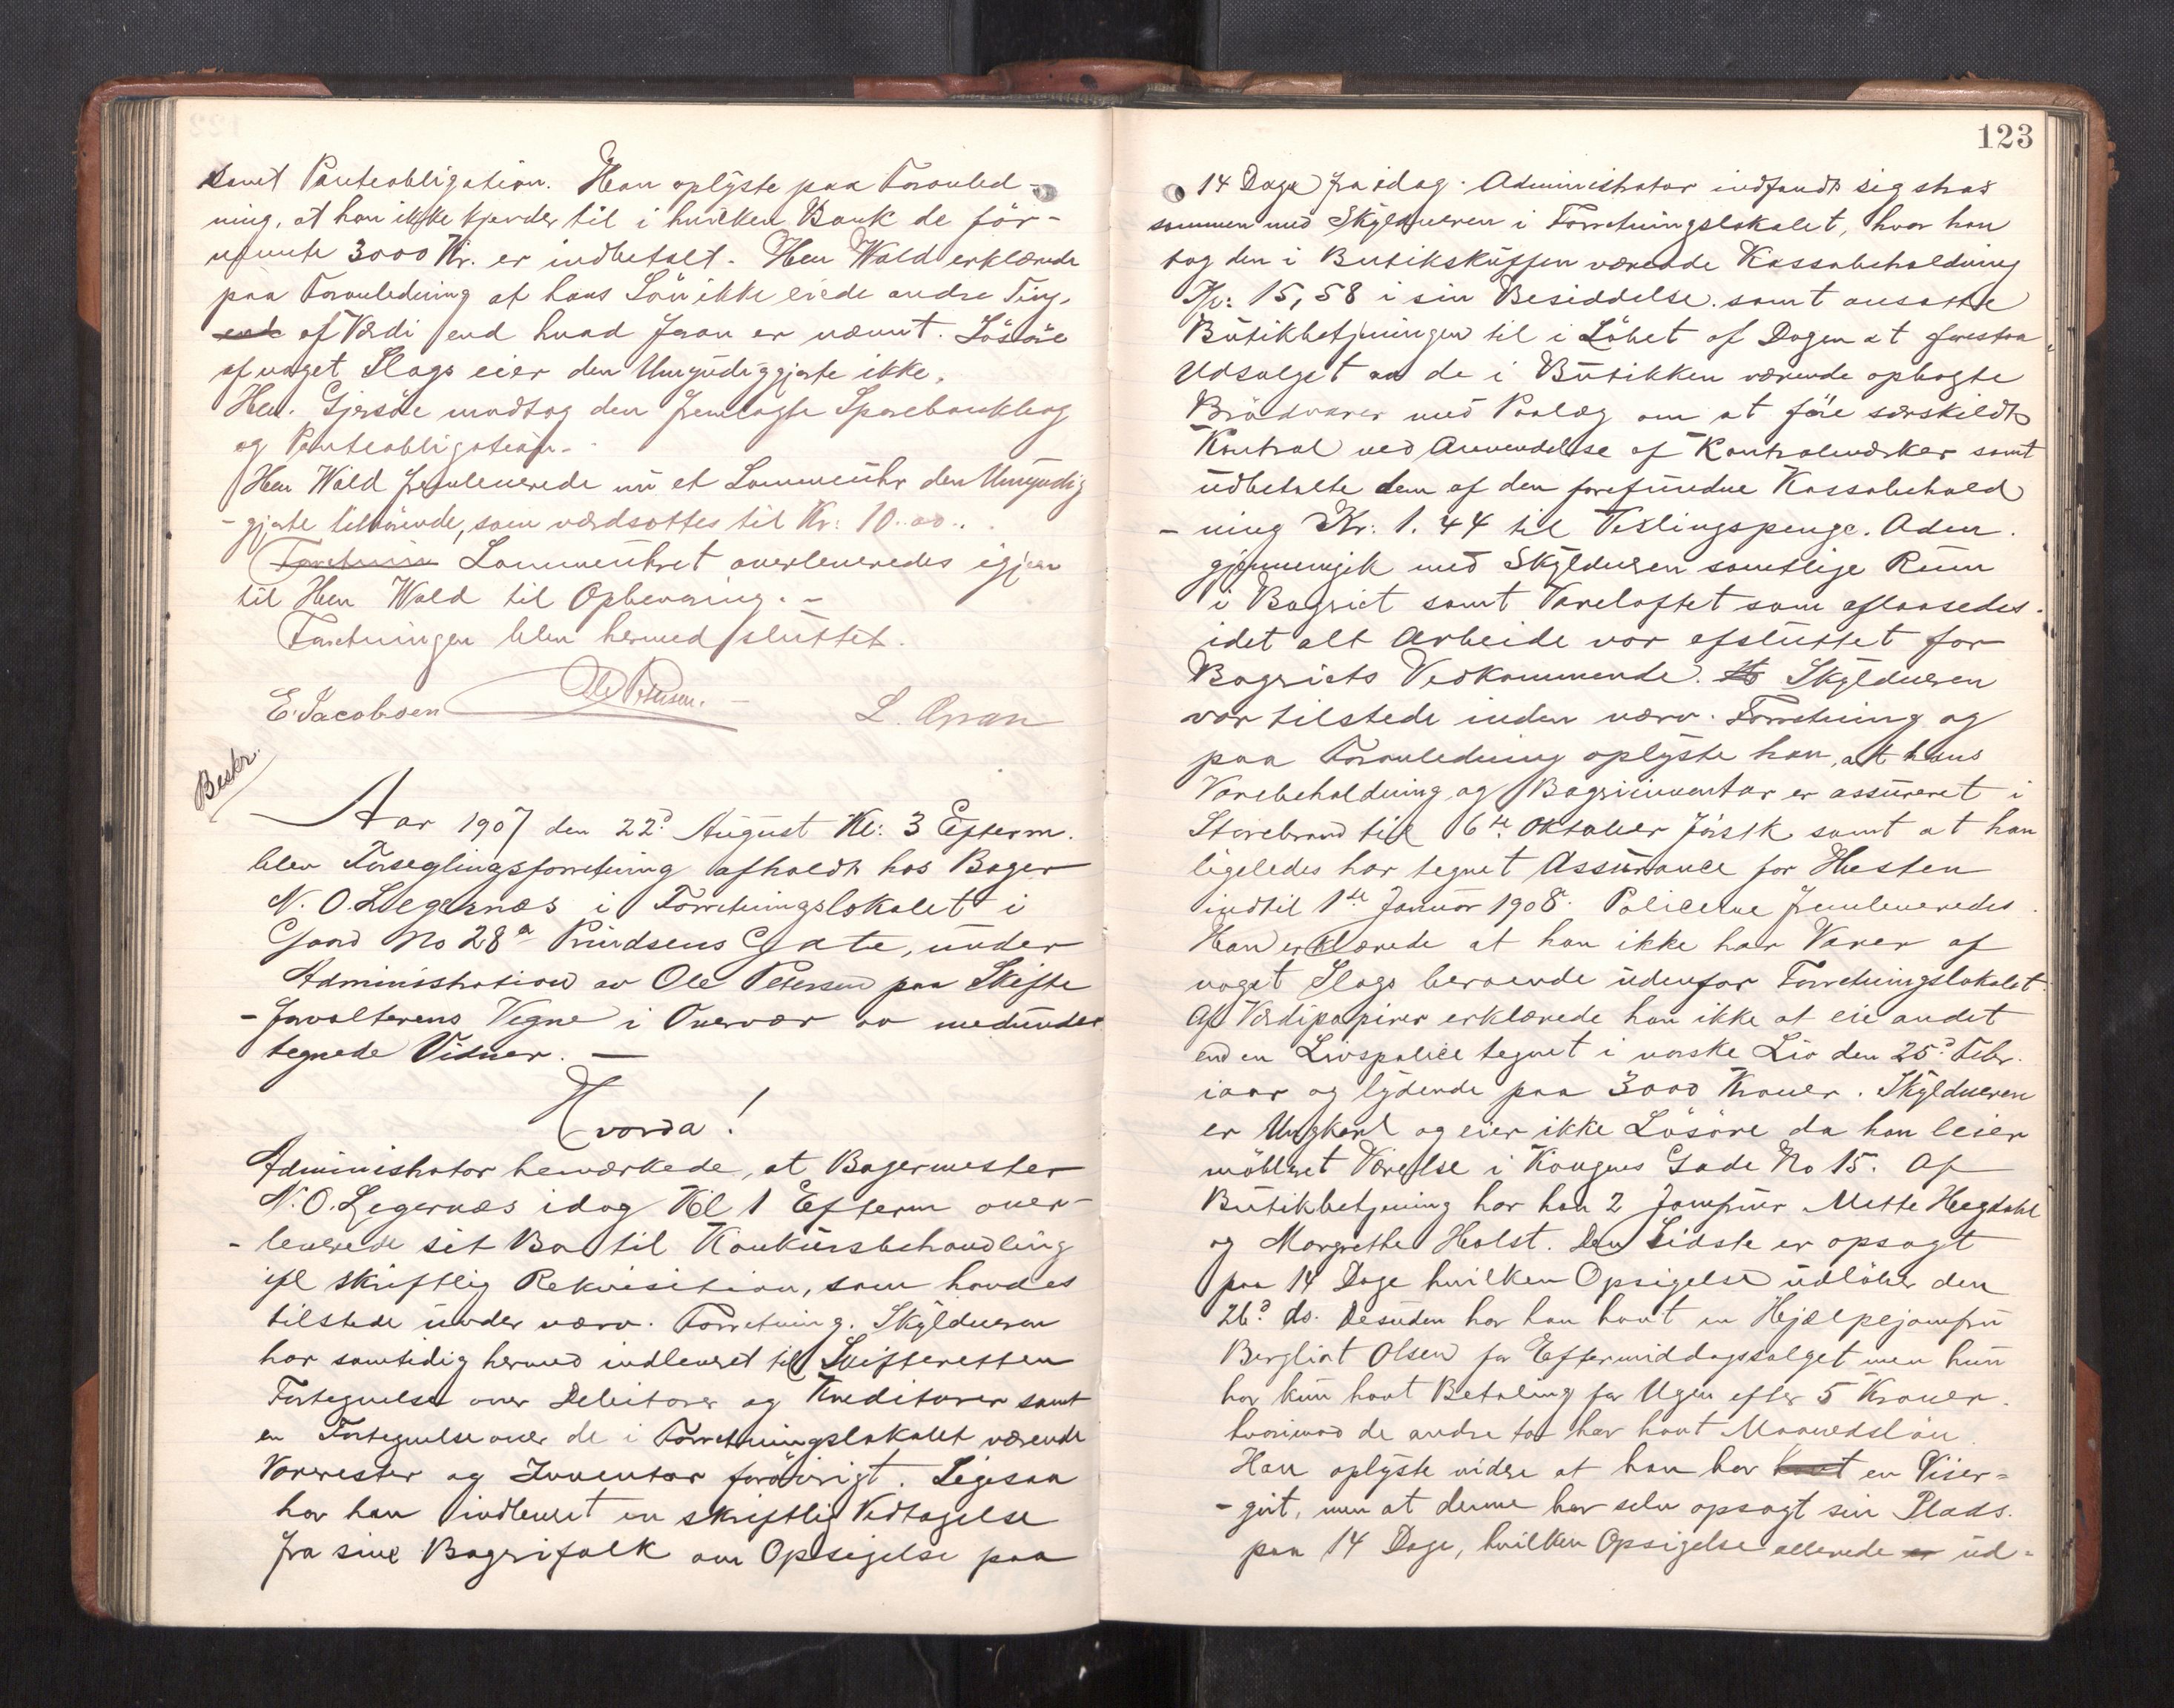 samt Panteobligation. Han oplyste paa Foranled-
ning, at han ikke kjender til i hvilken Bank de før-
nævnte 3000 Kr. er indbetalt. Herr Wold erklærede
paa Foranledning at hans Søn ikke eiede andre Ting,
af Værdi end hvad foran er nævnt. Løsøre
af noget Slags eier den Umyndiggjorte ikke.
Herr. Gjersøe modtog den fremlagte Sparebankbog
og Panteobligation.
Herr Wold fremleverede nu et Lommeuhr den Umyndig
-gjorte tilhørende, som værdsattes til Kr: 10.00..
Lommeuhret overleveredes igjen
til Herr Wold til Opbevaring. -
Forretningen blev hermed sluttet.
E. Jacobsen Ole Petersen. L. Gran
Beskr.
Aar 1907 den 22d August Kl: 3 Efterm.
blev Forseglingsforretning afholdt hos Bager
N. O. Legernæs i Forretningslokalet i
Gaard No 28a Prindsens Gate, under
Administration av Ole Petersen paa Skifte
-forvalterens Vegne i Overvær av medunder
tegnede Vidner. —
Hvorda!
Administrator bemærkede, at Bagermester
N. O. Legernæs idag Kl 1 Efterm over-
-leverede sit Bo til Konkursbehandling
ifl skriftlig Rekvisition, som havdes
tilstede under nærv. Forretning. Skyldneren
har samtidig hermed indleveret til Skifteretten
Fortegnelse over Debitorer og Kreditorer samt
en Fortegnelse over de i Forretningslokalet værende
Varerester og Inventar forøvrigt. Ligesaa
har han indleveret en skriftlig Vedtagelse
fra sine Bagerifolk om Opsigelse paa
123
14 Dage fra idag. Administrator indfandt sig strax
sammen med Skyldneren i Forretningslokalet, hvor han
tog den i Butiksskuffen værende Kassabeholdning
Kr: 15,58 i sin Besiddelse. samt ansatte
Butikbetjeningen til i Løbet af Dagen at forestaa
Udsalget av de i Butikken værende opbagte
Brødvarer med Paalæg om at føre særskildt
Kontrol ved Anvendelse af Kontrolmærker samt
udbetalte dem af den forefundne Kassabehold
- ning Kr: 1.44 til Vexlingspenge. Adm.
gjennemgik med Skyldneren samtlige Rum
i Bageriet samt Vareloftet som aflaasedes.
idet alt Arbeide var afsluttet for
Bageriets Vedkommende. Skyldneren
var tilstede under nærv. Forretning og
paa Foranledning oplyste han, at hans
Varebeholdning og Bageriinventar er assureret i
Storebrand til 6te Oktober førstk. samt at han
ligeledes har tegnet Assurance for Hesten
indtil 1ste Januar 1908. Policerne fremleveredes.
Han erklærede at han ikke har Varer af
noget Slags beroende udenfor Forretningslokalet.
Af Værdipapirer erklærede han ikke at eie andet
end en Livspolice tegnet i norske Liv den 25d Febr.
iaar og lydende paa 3000 Kroner. Skyldneren
er Ungkarl og eier ikke Løsøre da han leier
møblert Værelse i Kongens Gade No 15. Af
Butikbetjening har han 2 Jomfruer Mette Hegdahl
og Margrethe Holst. Den Sidste er opsagt
paa 14 Dage hvilken Opsigelse udløber den
26d ds. Desuden har han havt en Hjælpejomfru
Bergliot Olsen for Eftermiddagssalget men hun
har kun havt Betaling for Ugen efter 5 Kroner.
hvorimod de andre to har havt Maanedsløn
Han oplyste videre at han har havt en Viser-
-gut, men at denne har selv opsagt sin Plads.
paa 14 Dage, hvilken Opsigelse allerede er ud-